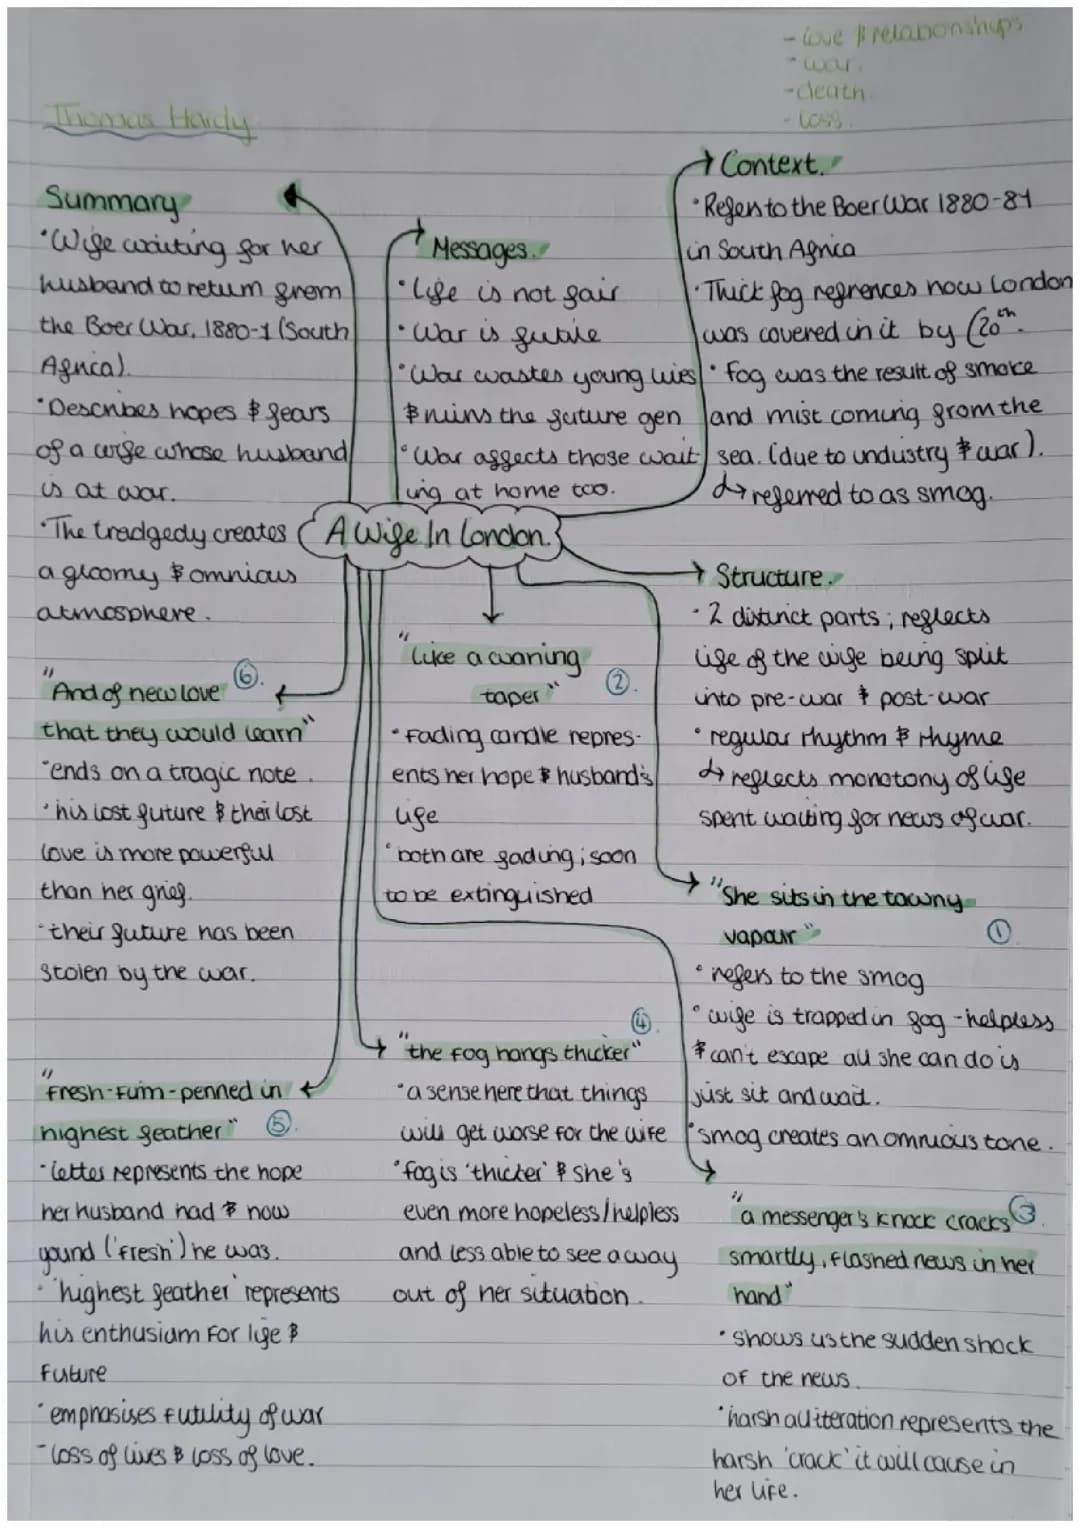 - love & relationships
- war.
- death.
- loss.
Thomas Hardy
Summary
• Wife waiting for her
husband to return from
the Boer War, 1880-1 (South
Africa).
• Describes hopes & fears
of a wife whose husband
is at war.
• The tradgedy creates
a gloomy & omnious
atmosphere.
Messages.
• Life is not fair
• War is futile
• War wastes young lives
& ruins the future gen
• War affects those wait
ing at home too.
Context.
• Refers to the Boer War 1880-81
in South Africa
• Thick fog refrences how London
was covered in it by (20th.
• fog was the result of smoke
and mist coming from the
sea. (due to industry & war).
↳ referred to as smog.
A Wife In London.
Structure.
• 2 distinct parts; reflects
life of the wife being split
into pre-war & post-war
• regular rhythm & rhyme
↳ reflects monotony of life
spent waiting for news of war.
"She sits in the tawny
vapour" ①
• refers to the smog
• wife is trapped in fog - helpless
& can't escape all she can do is
just sit and wait.
• smog creates an omnious tone.
"like a waning
taper" ②.
• fading candle repres-
ents her hope & husband's
life
• both are fading; soon
to be extinguished
"a messenger's knock cracks ③.
smartly, flashed news in her
hand"
• shows us the sudden shock
of the news.
• harsh alliteration represents the
harsh 'crack' it will cause in
her life.
④.
"the fog hangs thicker"
• a sense here that things
will get worse for the wife
• fog is 'thicker' & she's
even more hopeless/helpless
and less able to see a way
out of her situation.
"fresh-fuim-penned in
highest feather" ⑤.
• letter represents the hope
her husband had & how
yound ('fresh') he was.
• 'highest feather' represents
his enthusiam for life &
future
• emphasises futility of war
- loss of lives & loss of love.
"And of new love ⑥.
that they would learn"
• ends on a tragic note.
• his lost future & their lost
love is more powerful
than her grief.
• their future has been
stolen by the war.